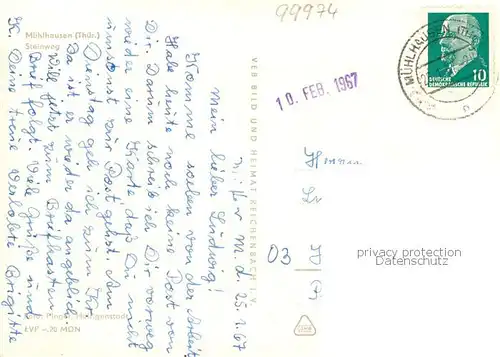 99974
Mühlhausen (Thür.)
Steinweg
MÜHLHAUSEN (THÜR
10
DEUTSCHE
DEMOKRATISCHE REPUBLIK
10. FEB. 1967
VEB BILD UND HEIMAT REICHENBACH I. V.
M. d. 25.1.67
Mein lieber Ludwig!
Komme soeben von der Arbeit.
Habe heute noch keine Post von
Dir. Darum schreibe ich Dir vorweg
wieder eine Karte daß Du nicht
umsonst zur Post gehst. Am
Dienstag geh ich zum
Da ist er wieder da angeblich.
Will jetzt zum Briefkasten
Brief folgt. Viele Grüße und
K. Deine treue Verlobte Brigitte
Herrn
03
privacy protection
Datenschutz
EVP –,20 MDN